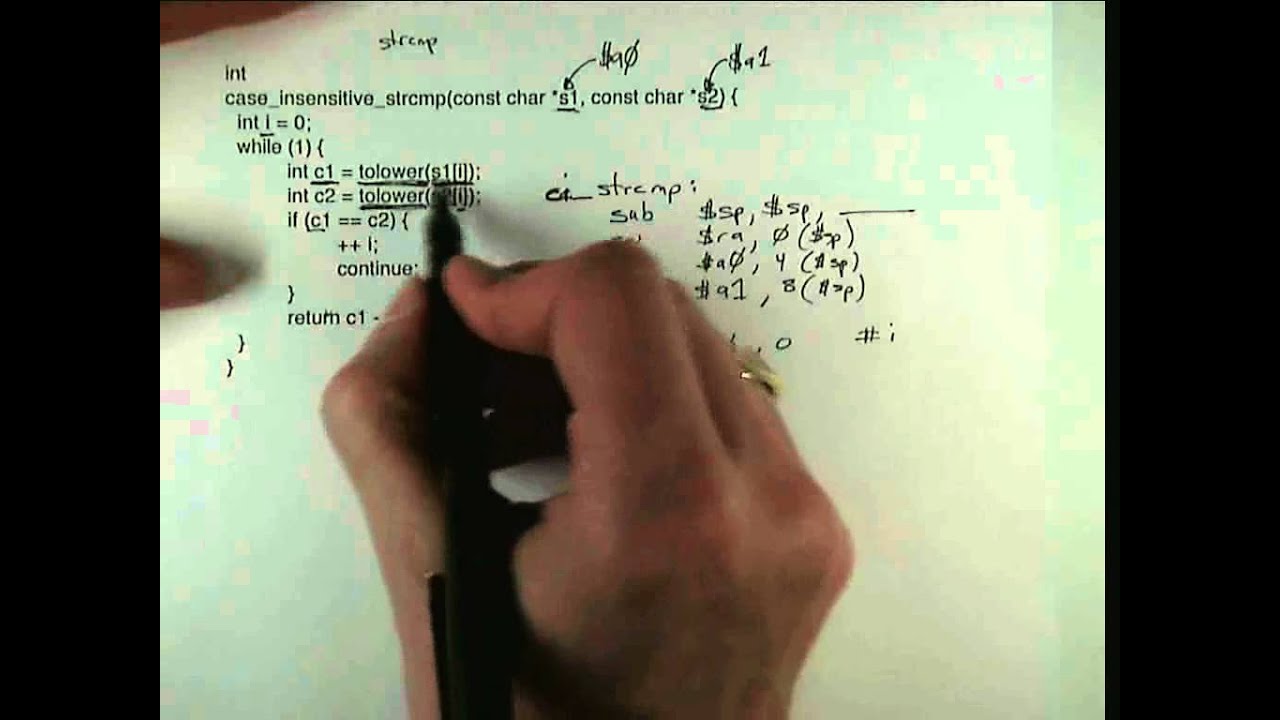 strcmp
$a0
$a1
int
case_insensitive_strcmp(const char *s1, const char *s2) {
int i = 0;
while (1) {
int c1 = tolower(s1[i]);
int c2 = tolower([i]);
if (c1 == c2) {
++ i;
continue;
}
return c1 -
}
}
ci_strcmp:
sub $sp, $sp,
$ra, 0 ($sp)
$a0, 4 ($sp)
$a1, 8 ($sp)
, 0 # i